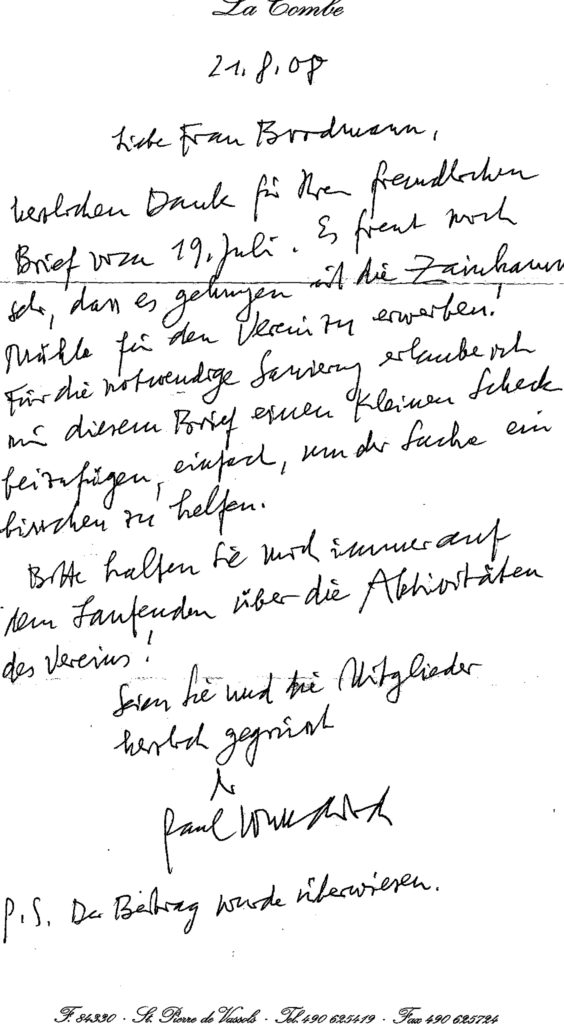 La Combe
21.8.08
Liebe Frau Bordmann,
herzlichen Dank für Ihren freundlichen
Brief vom 19. Juli. Es freut mich
sehr, dass es gelungen ist die Zainhammer
Mühle für den Verein zu erwerben!
Für die notwendige Sanierung erlaube ich
mir diesem Brief einen kleinen Scheck
beizufügen, einfach, um der Sache ein
bisschen zu helfen.
Bitte halten Sie mich immer auf
dem Laufenden über die Aktivitäten
des Vereins!
Seien Sie und die Mitglieder
herzlich gegrüsst
Ihr
Paul
P.S. Der Beitrag wurde überwiesen.
F. 84330 · St. Pierre de Vassols · Tél. 490 625419 · Fax 490 625724